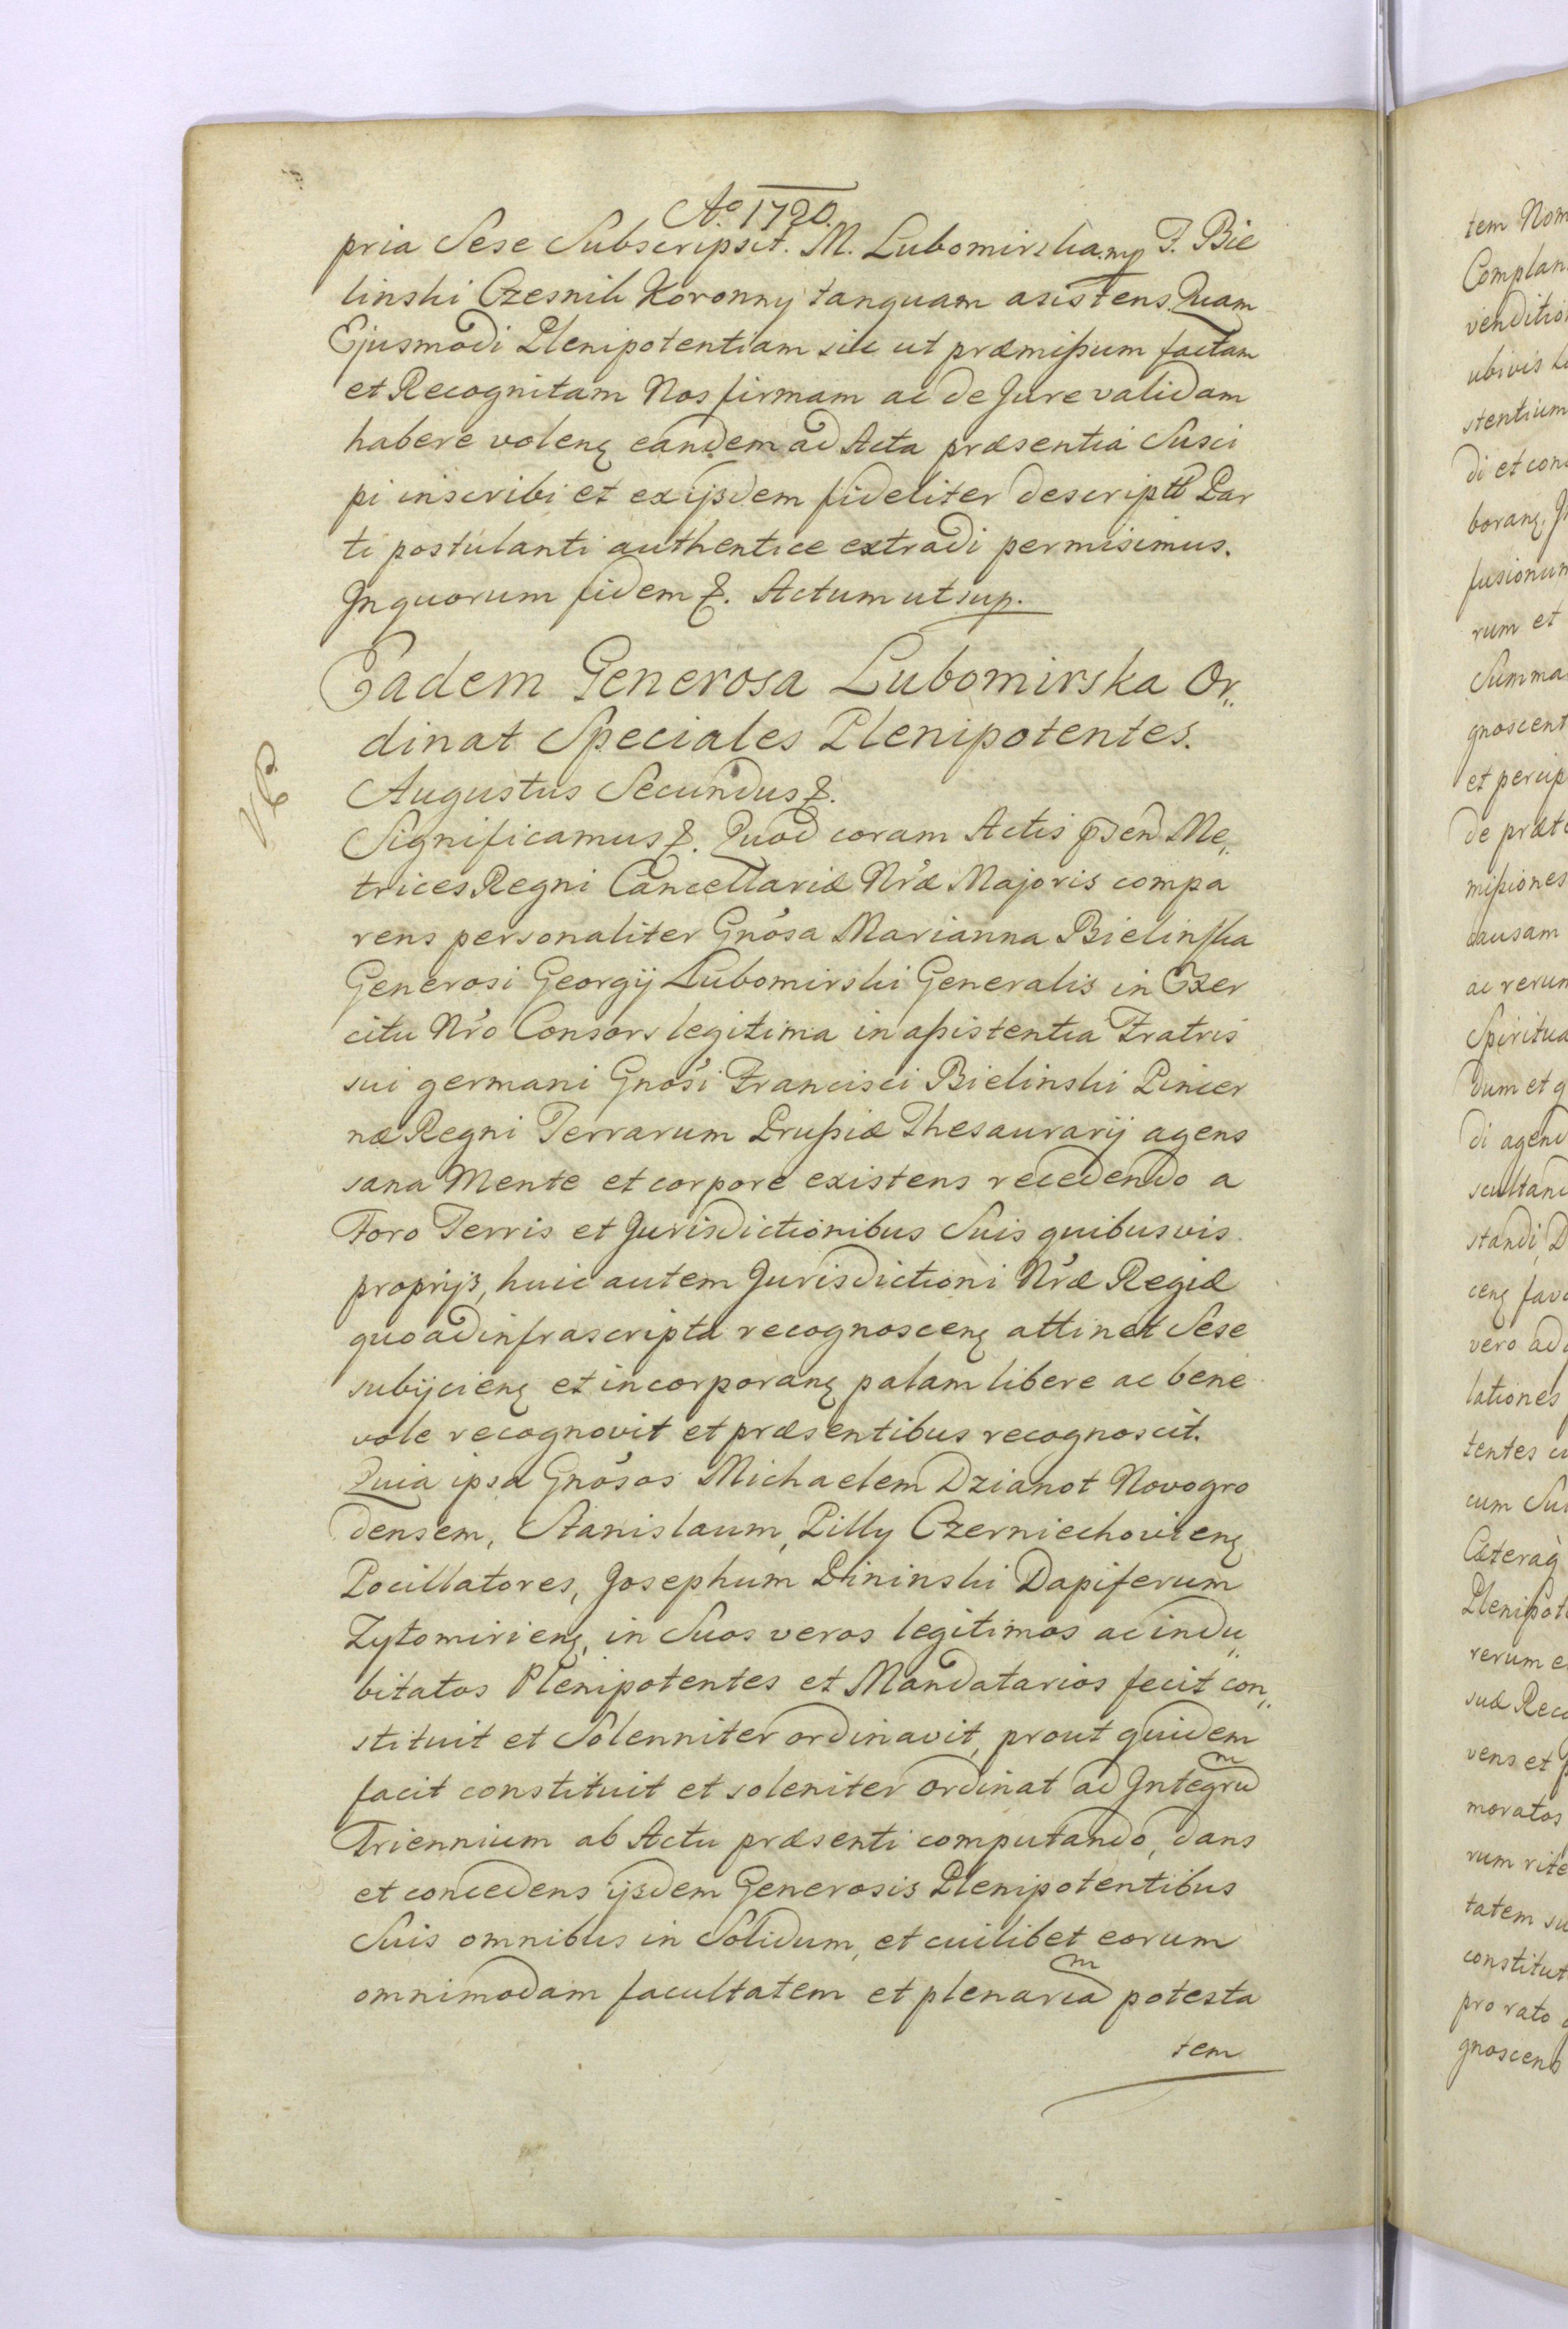 Ao 1720.
pria Sese Subscripsit. M. Lubomirska mp F. Bie
linski Czesnik Koronny tanquam asistens. Quam
Ejusmodi Plenipotentiam sic ut præmißum factam
et Recognitam Nos firmam ac de Jure validam
habere volenꝫ eandem ad Acta præsentia Susci
pi inscribi et ex ijsdem fideliter descriptt Par
ti postulanti authentice extradi permisimus.
In quorum fidem &. Actum ut sup.
Eadem Generosa Lubomirska Or„
dinat Speciales Plenipotentes.
Augustus Secundus &.
Significamus &. Quod coram Actis psen Me„
trices Regni Cancellariæ Nr̃æ Majoris compa
rens personaliter Gnõsa Marianna Bielinska
Generosi Georgij Lubomirski Generalis in Exer
citu Nr̃o Consors legitima in aßistentia Fratris
sui germani Gnõsi Francisci Bielinski Pincer
næ Regni Terrarum Prußiæ Thesaurarij agens
sana Mente et corpore existens recedendo a
Foro Terris et Jurisdictionibus Suis quibusvis
proprijs, huic autem Jurisdictioni Nr̃æ Regiæ
quo ad infrascripta recognoscenꝫ attinet Sese
subijcienꝫ et incorporanꝫ palam libere ac bene
vole recognovit et præsentibus recognoscit.
Quia ipsa Gnõsos Michaelem Dzianot Novogro
densem, Stanislaum, Pilly Czerniechovienꝫ
Pocillatores, Josephum Dapiferum
Zytomirienꝫ, in Suos veros legitimos ac indu„
bitatos Plenipotentes et Mandatarios fecit con„
stituit et Solenniter ordinavit, prout quidem
facit constituit et soleniter ordinat ad Integrum
Triennium ab Actu præsenti computando, dans
et concedens ijsdem Generosis Plenipotentibus
Suis omnibus in Solidum, et cuilibet eorum
omnimodam facultatem et plenariam potesta
tem
tem Nom
Complan
venditio
ubivis
stentium
di et con
boranꝫ
fusionum
rum et
Summa
gnoscent
et percip
de præt
mißiones
causam
ac rerum
Spiritua
dum et q
di agend
scultand
standi, D
cenꝫ fav
vero ad
lationes
tentes
cum Su
Cæteraq
Plenipot
rerum e
suæ Rec
vens et
moratos
rum rite
tatem su
constitut
pro rato
gnoscens